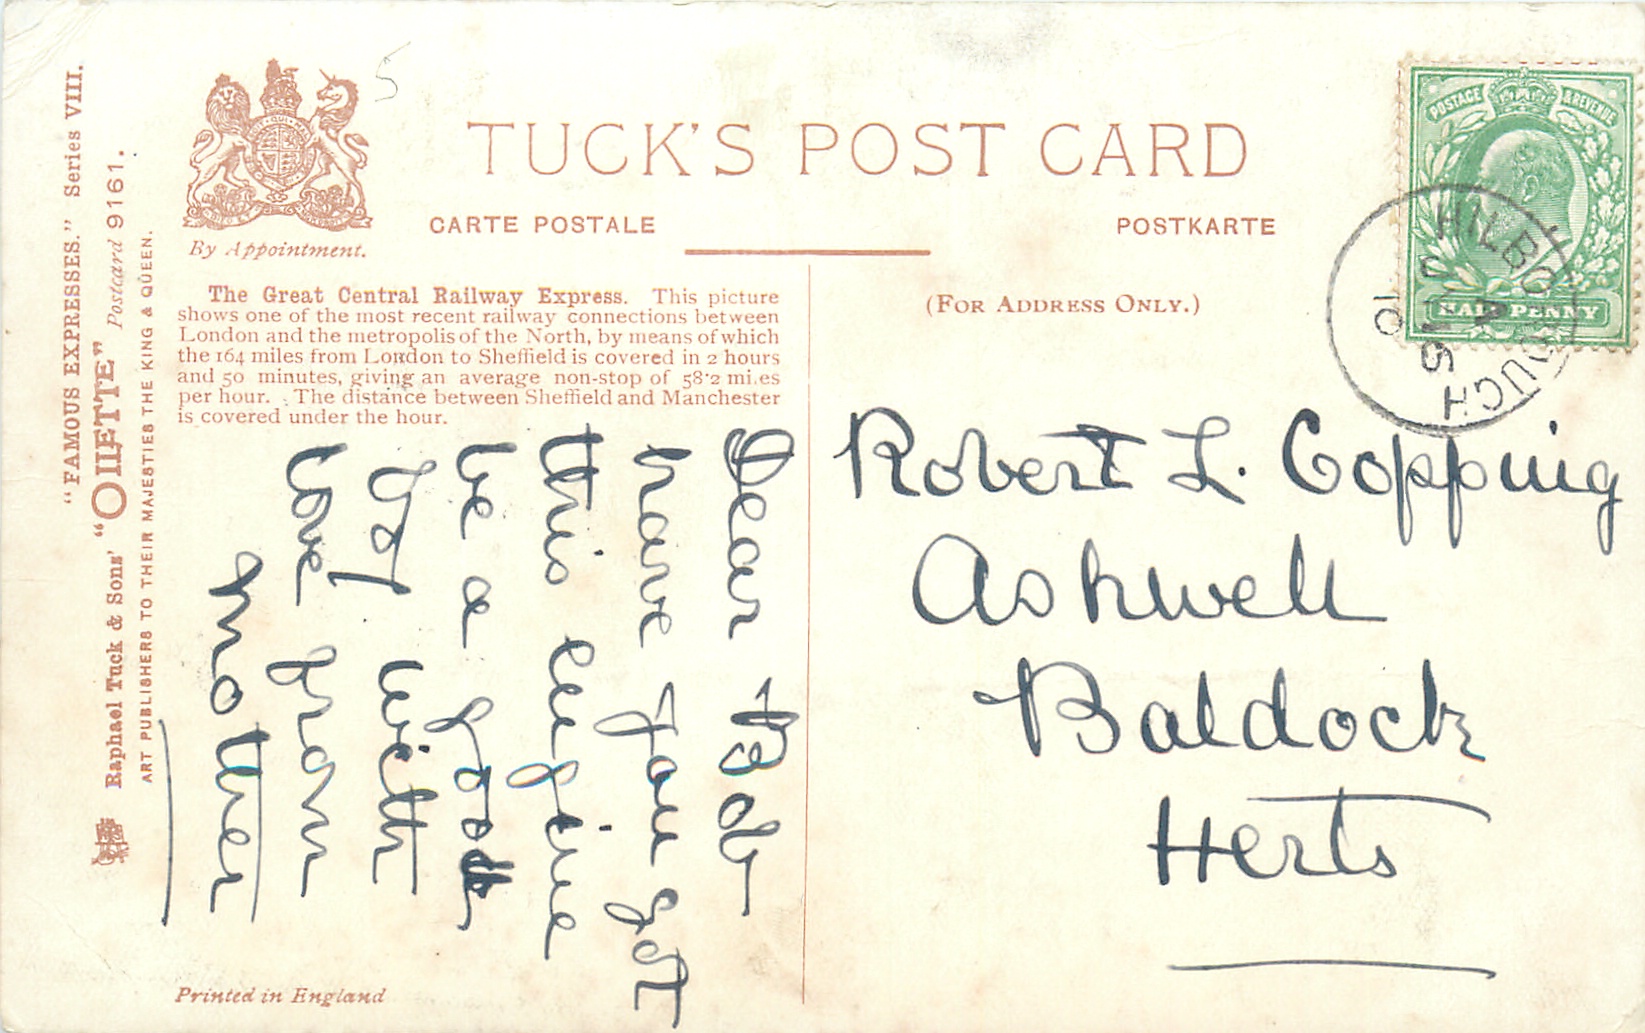 "FAMOUS EXPRESSES." Series VIII.
Raphael Tuck & Sons' "OILETTE" Postcard 9161.
ART PUBLISHERS TO THEIR MAJESTIES THE KING & QUEEN.
By Appointment.
5
TUCK'S POST CARD
CARTE POSTALE
POSTKARTE
The Great Central Railway Express. This picture
shows one of the most recent railway connections between
London and the metropolis of the North, by means of which
the 164 miles from London to Sheffield is covered in 2 hours
and 50 minutes, giving an average non-stop of 58·2 miles
per hour. The distance between Sheffield and Manchester
is covered under the hour.
Dear Bob
have you got
this engine
be a good
boy with
love from
mother
Printed in England
(FOR ADDRESS ONLY.)
POSTAGE & REVENUE
HALFPENNY
HILBOROUGH
A
15
10
Robert L. Copping
Ashwell
Baldock
Herts